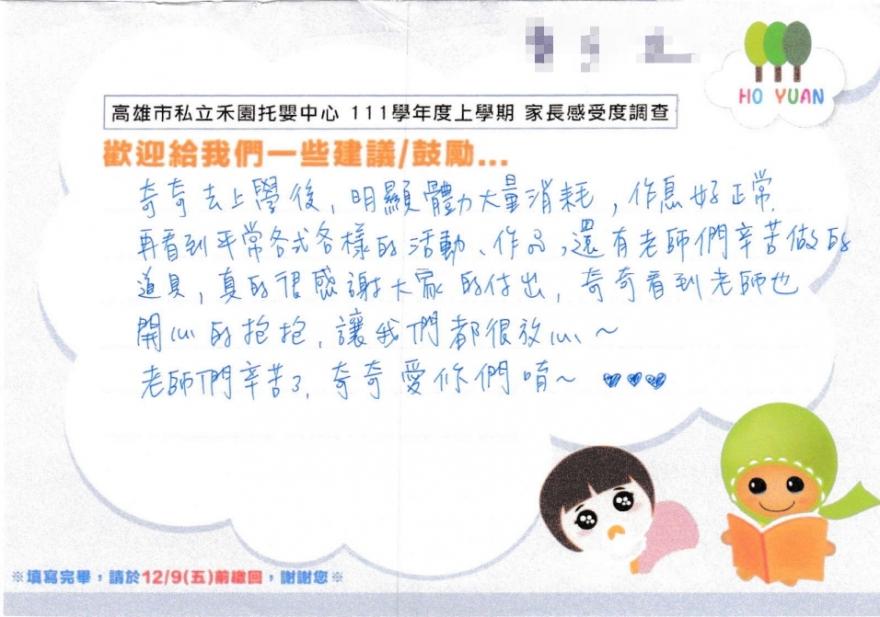 HO YUAN
高雄市私立禾園托嬰中心 111學年度上學期 家長感受度調查
歡迎給我們一些建議/鼓勵...
奇奇去上學後，明顯體力大量消耗，作息好正常.
再看到平常各式各樣的活動、作品，還有老師們辛苦做的
道具，真的很感謝大家的付出，奇奇看到老師也
開心的抱抱，讓我們都很放心～
老師們辛苦了，奇奇愛你們唷～ ♥♥♥
※填寫完畢，請於12/9(五)前繳回，謝謝您※